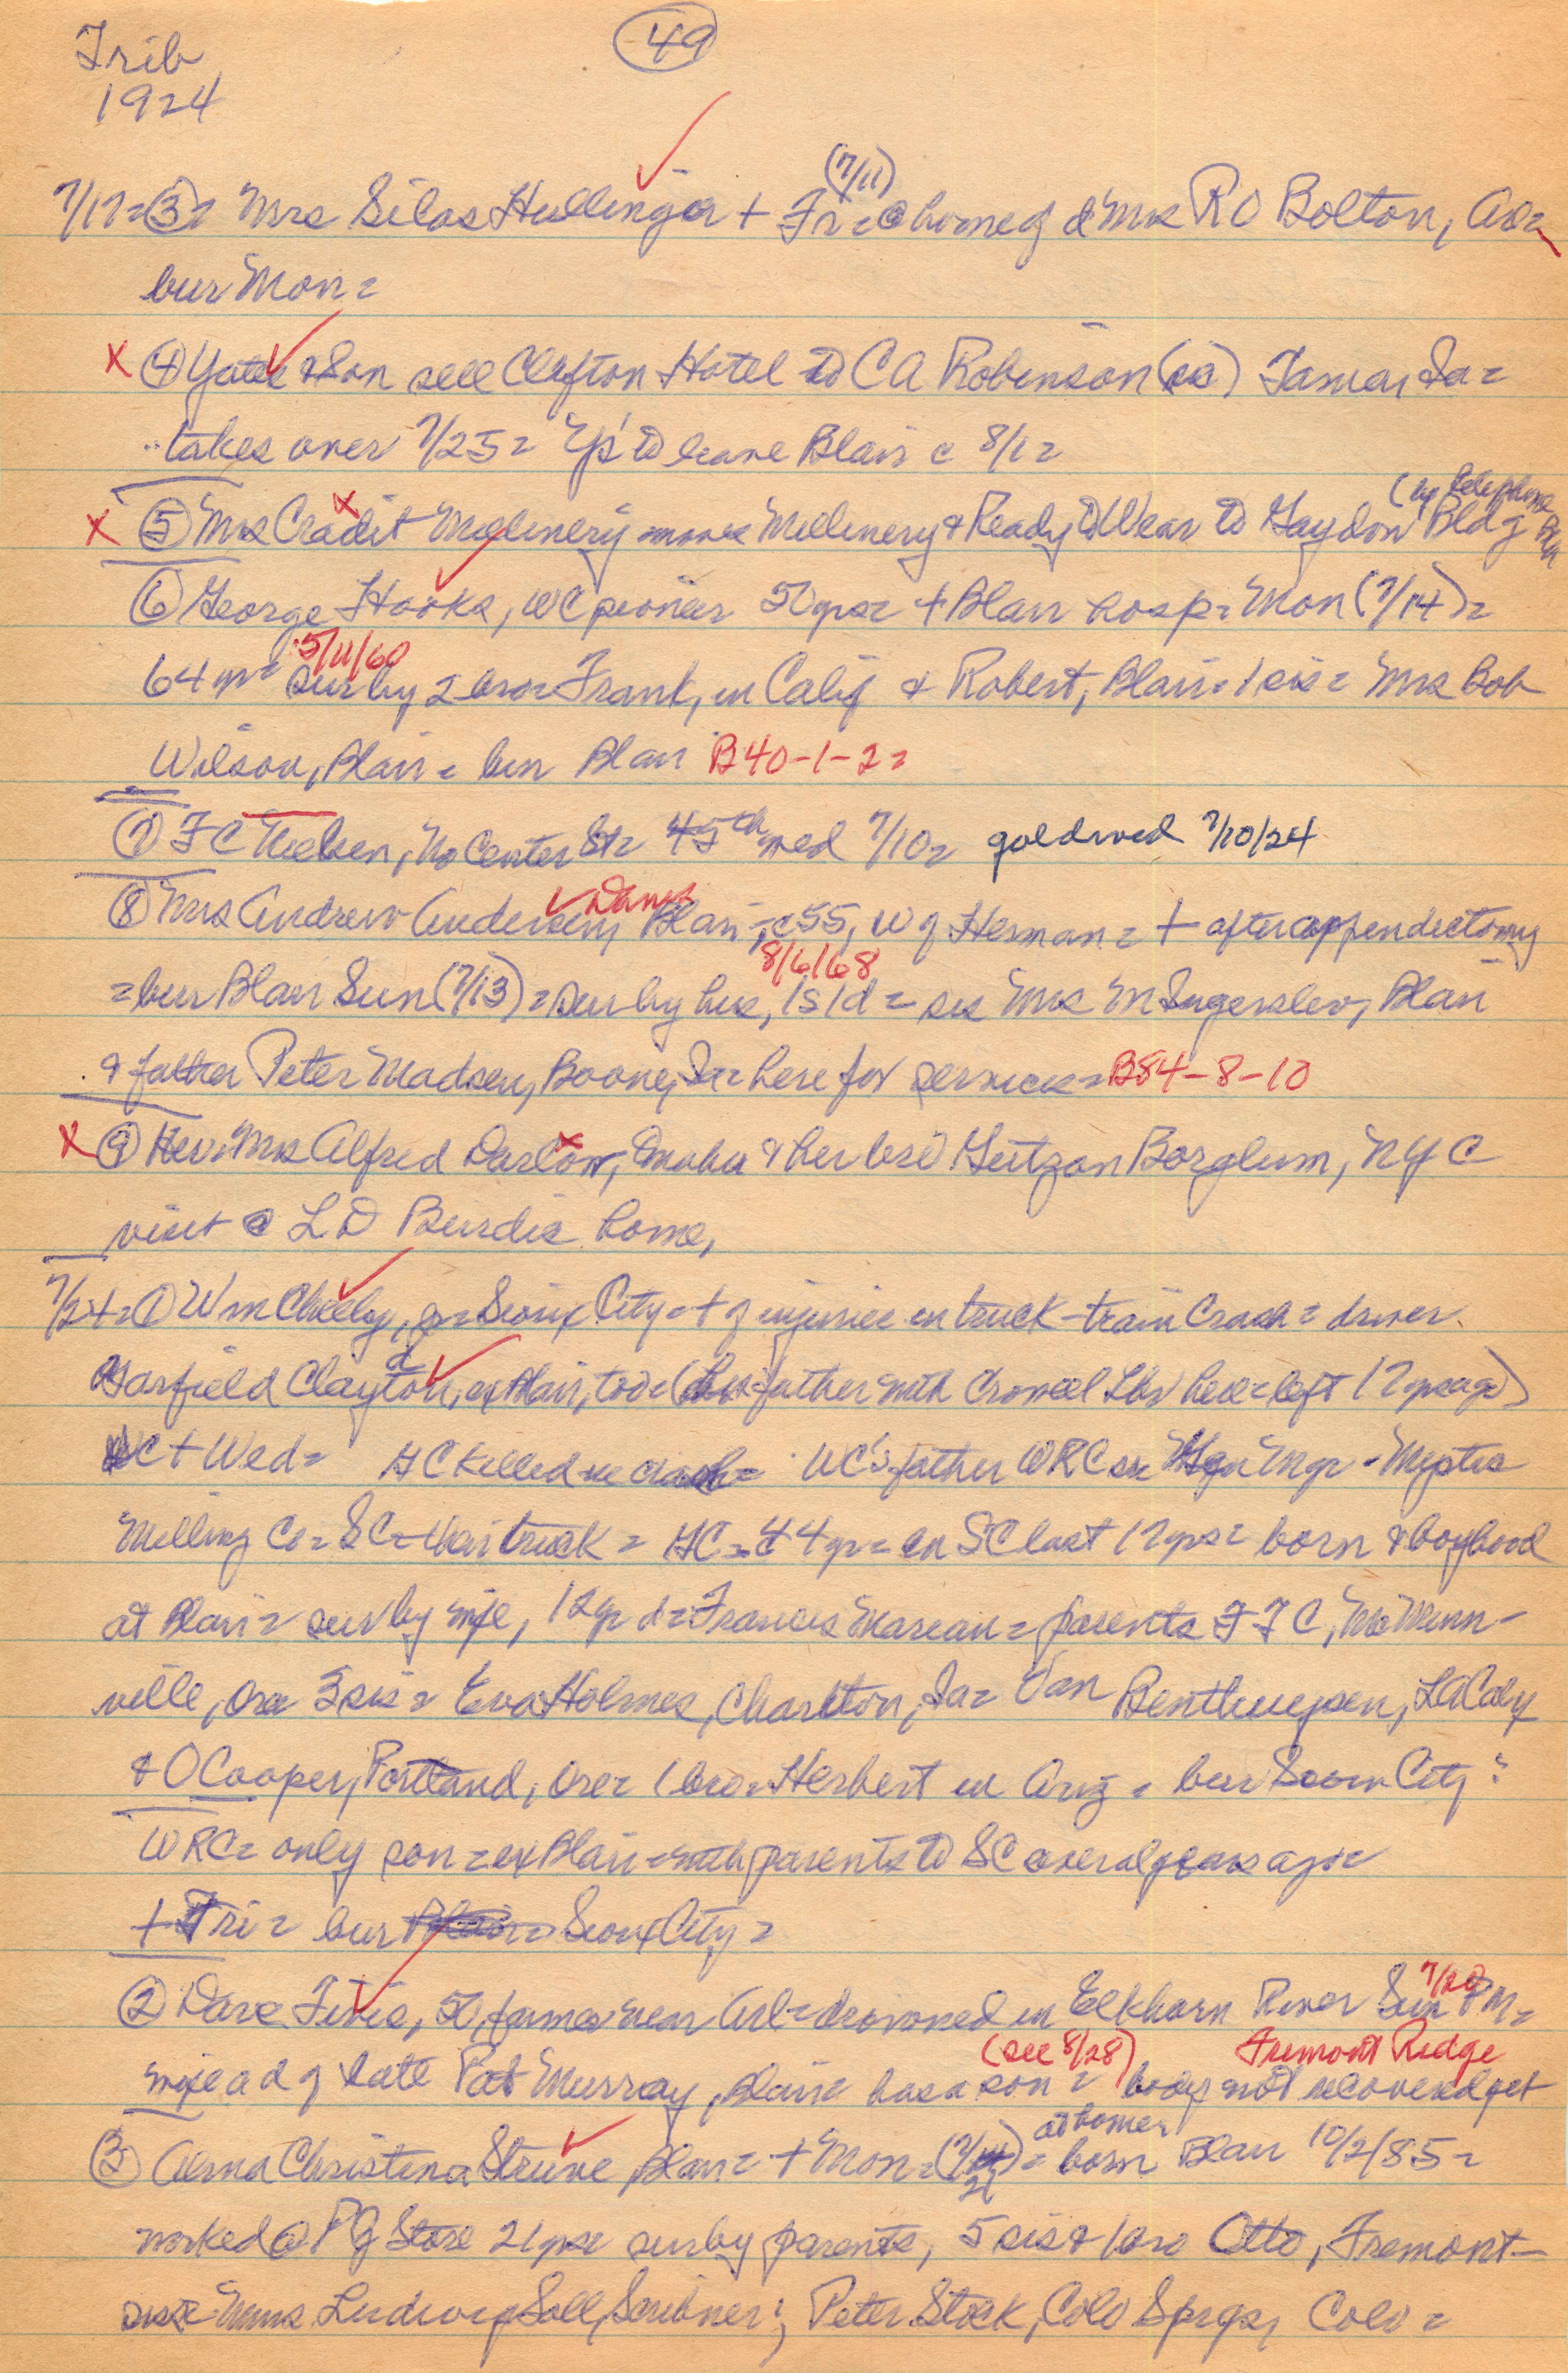 Trib
49
1924
(7/11)
7/17=③= Mrs Silas Hullinger + Fri = @ home of d Mrs R O Bolton,
bur Mon =
X ④ & Son sell Clifton Hotel to C A Robinson Ia =
takes over 7/25 = Y's to leave Blair c 8/1 =
(by telephone
X ⑤ Mrs Cradit Millinery moves Millinery & Ready to Wear to Gaydon Bldg
⑥ George Hooks, WC pioneer 50 yrs = + Blair hosp = Mon (7/14) =
5/11/60
64 yr = sur by 2 bro = Frank, in Calif & Robert, Blair = 1 sis = Mrs Bob
Wilson, Blair = bur Blair B40-1-2 =
⑦ F C Nielsen, No Center St = 45th wed 7/10 = gold wed 7/10/24
Danes
⑧ Mrs Andrew Andersen, Blair, c55, W of Herman = + after appendectomy
8/6/68
= bur Blair Sun (7/13) = sur by hus, 1s 1d = sis Mrs M Ingerslev, Blair
& father Peter Madsen, Boone, Ia = here for services = B84-8-10
X ⑨ Mrs Alfred Darlow, Omaha & her bro Gutzon Borglum, NYC
visit @ L D Burdic home,
7/24=① Wm Cheeley, = Sioux City = + of injuries in truck-train crash = driver
d
Garfield Clayton, ex Blair, too = (his father with Crowell Lbr here = left 12 yrs ago)
WC + Wed = GC killed in crash = WC's father WRC Mgr = Mystic
Milling Co = SC = their truck = GC = 44 yr = in SC last 12 yrs = born & boyhood
at Blair = sur by wife, 12 yr d = Frances Marean = parents F F C, McMinn-
ville, Ore 3 sis = Eva Holmes, Charlton, Ia = Van Benthuysen, LA Calif
& O Cooper, Portland, Ore = 1 bro = Herbert in Ariz = bur Sioux City =
WRC = only son = ex Blair = with parents to SC several years ago =
+ Fri = bur Blair = Sioux City =
7/20
② Dave Titus, 50, farmer near Arl = drowned in Elkhorn River Sun PM =
(see 8/28) Fremont Ridge
wife a d of late Pat Murray, Blair = has a son = body not recovered yet
at home
③ Alma Christina Struve, Blair = + Mon = (7/21) = born Blair 10/2/85 =
worked @ PG Store 21 yrs = sur by parents, 5 sis & 1 bro Otto, Fremont -
sis = Mmes Ludwig Soll, Scribner; Peter Stock, Colo Sprgs, Colo =